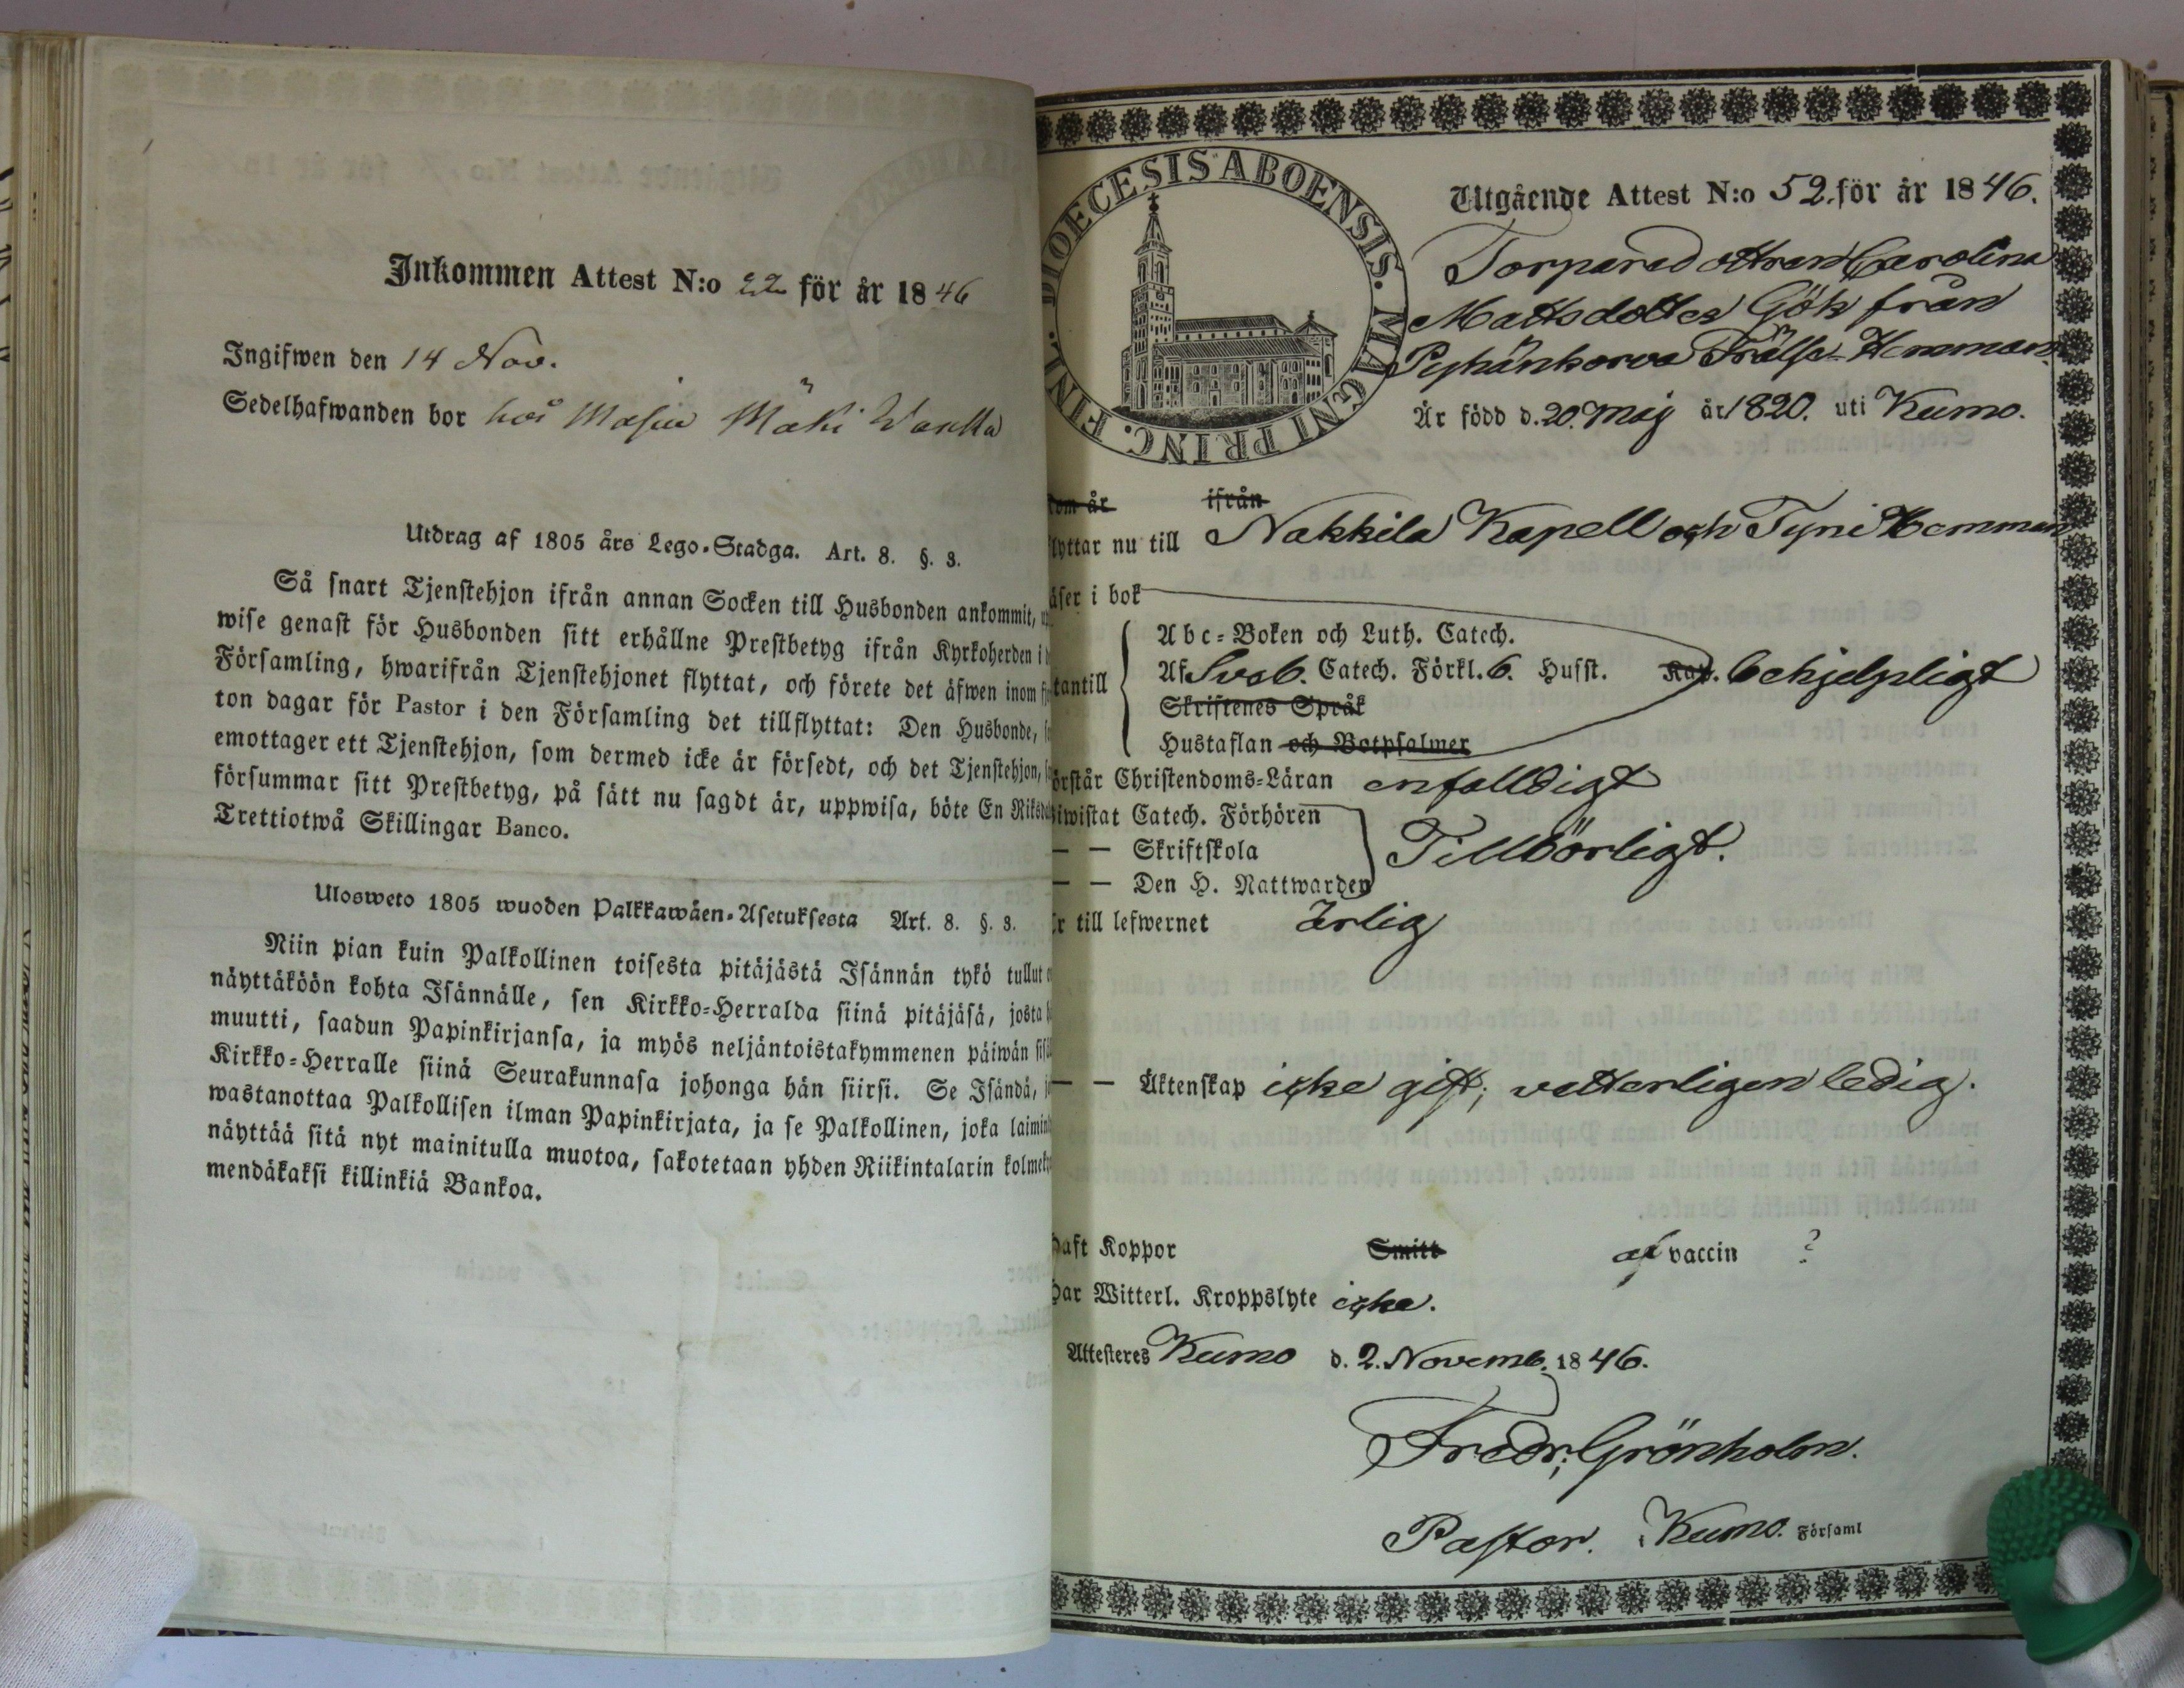 Inkommen Attest N:o 22 för år 1846
Ingifwen den 14 Nov.
Sedelhafwanden bor hos Mäki
Utdrag af 1805 års Lego-Stadga. Art. 8. §. 3.
Så snart Tjenstehjon ifrån annan Socken till Husbonden ankommit,
wise genast för Husbonden sitt erhållne Prestbetyg ifrån Kyrkoherden i
Församling, hwarifrån Tjenstehjonet flyttat, och förete det äfwen inom
ton dagar för Pastor i den Församling det tillflyttat: Den Husbonde,
emottager ett Tjenstehjon, som dermed icke är försedt, och det Tjenstehjon,
försummar sitt Prestbetyg, på sätt nu sagdt är, uppwisa, böte En
Trettiotwå Skillingar Banco.
Ulosweto 1805 wuoden Palkkawäen-Asetuksesta Art. 8. §. 3.
Niin pian kuin Palkollinen toisesta pitäjästä Isännän tykö tullut
näyttäköön kohta Isännälle, sen Kirkko-Herralda siinä pitäjäsä, josta
muutti, saadun Papinkirjansa, ja myös neljäntoistakymmenen päiwän
Kirkko-Herralle siinä Seurakunnasa johonga hän siirsi. Se Isändä,
wastanottaa Palkollisen ilman Papinkirjata, ja se Palkollinen, joka
näyttää sitä nyt mainitulla muotoa, sakotetaan yhden Riikintalarin
mendäkaksi killinkiä Bankoa.
DIOECESIS ABOENSIS. MAGNI PRINC. FINL.
Utgående Attest N:o 52. för år 1846.
Torpared ottren Carolina
Mattsdotter Gök från
Pyhänkorva Frälse Hemman
Är född d. 20. Maj år 1820. uti Kumo.
om år ifrån
flyttar nu till Nakkila Kapell och Tyni Hemman
läser i bok
Abc-Boken och Luth. Catech.
utantill Af Sveb. Catech. Förkl. 6. Husst. Kap. behjelpligt
Skriftenes Språk
Hustaflan och Botpsalmer
örstår Christendoms-Läran enfalldigt
wistat Catech. Förhören
— — Skriftskola Tillbörligt.
— — Den H. Nattwarden
är till lefwernet Ärlig
— — Äktenskap icke gift; vetterligen ledig.
haft Koppor Smitt af vaccin ?
har Witterl. Kroppslyte icke.
Attesteres Kumo d. 2. Novemb. 1846.
Fredr. Grönholm.
Pastor. i Kumo. Församl